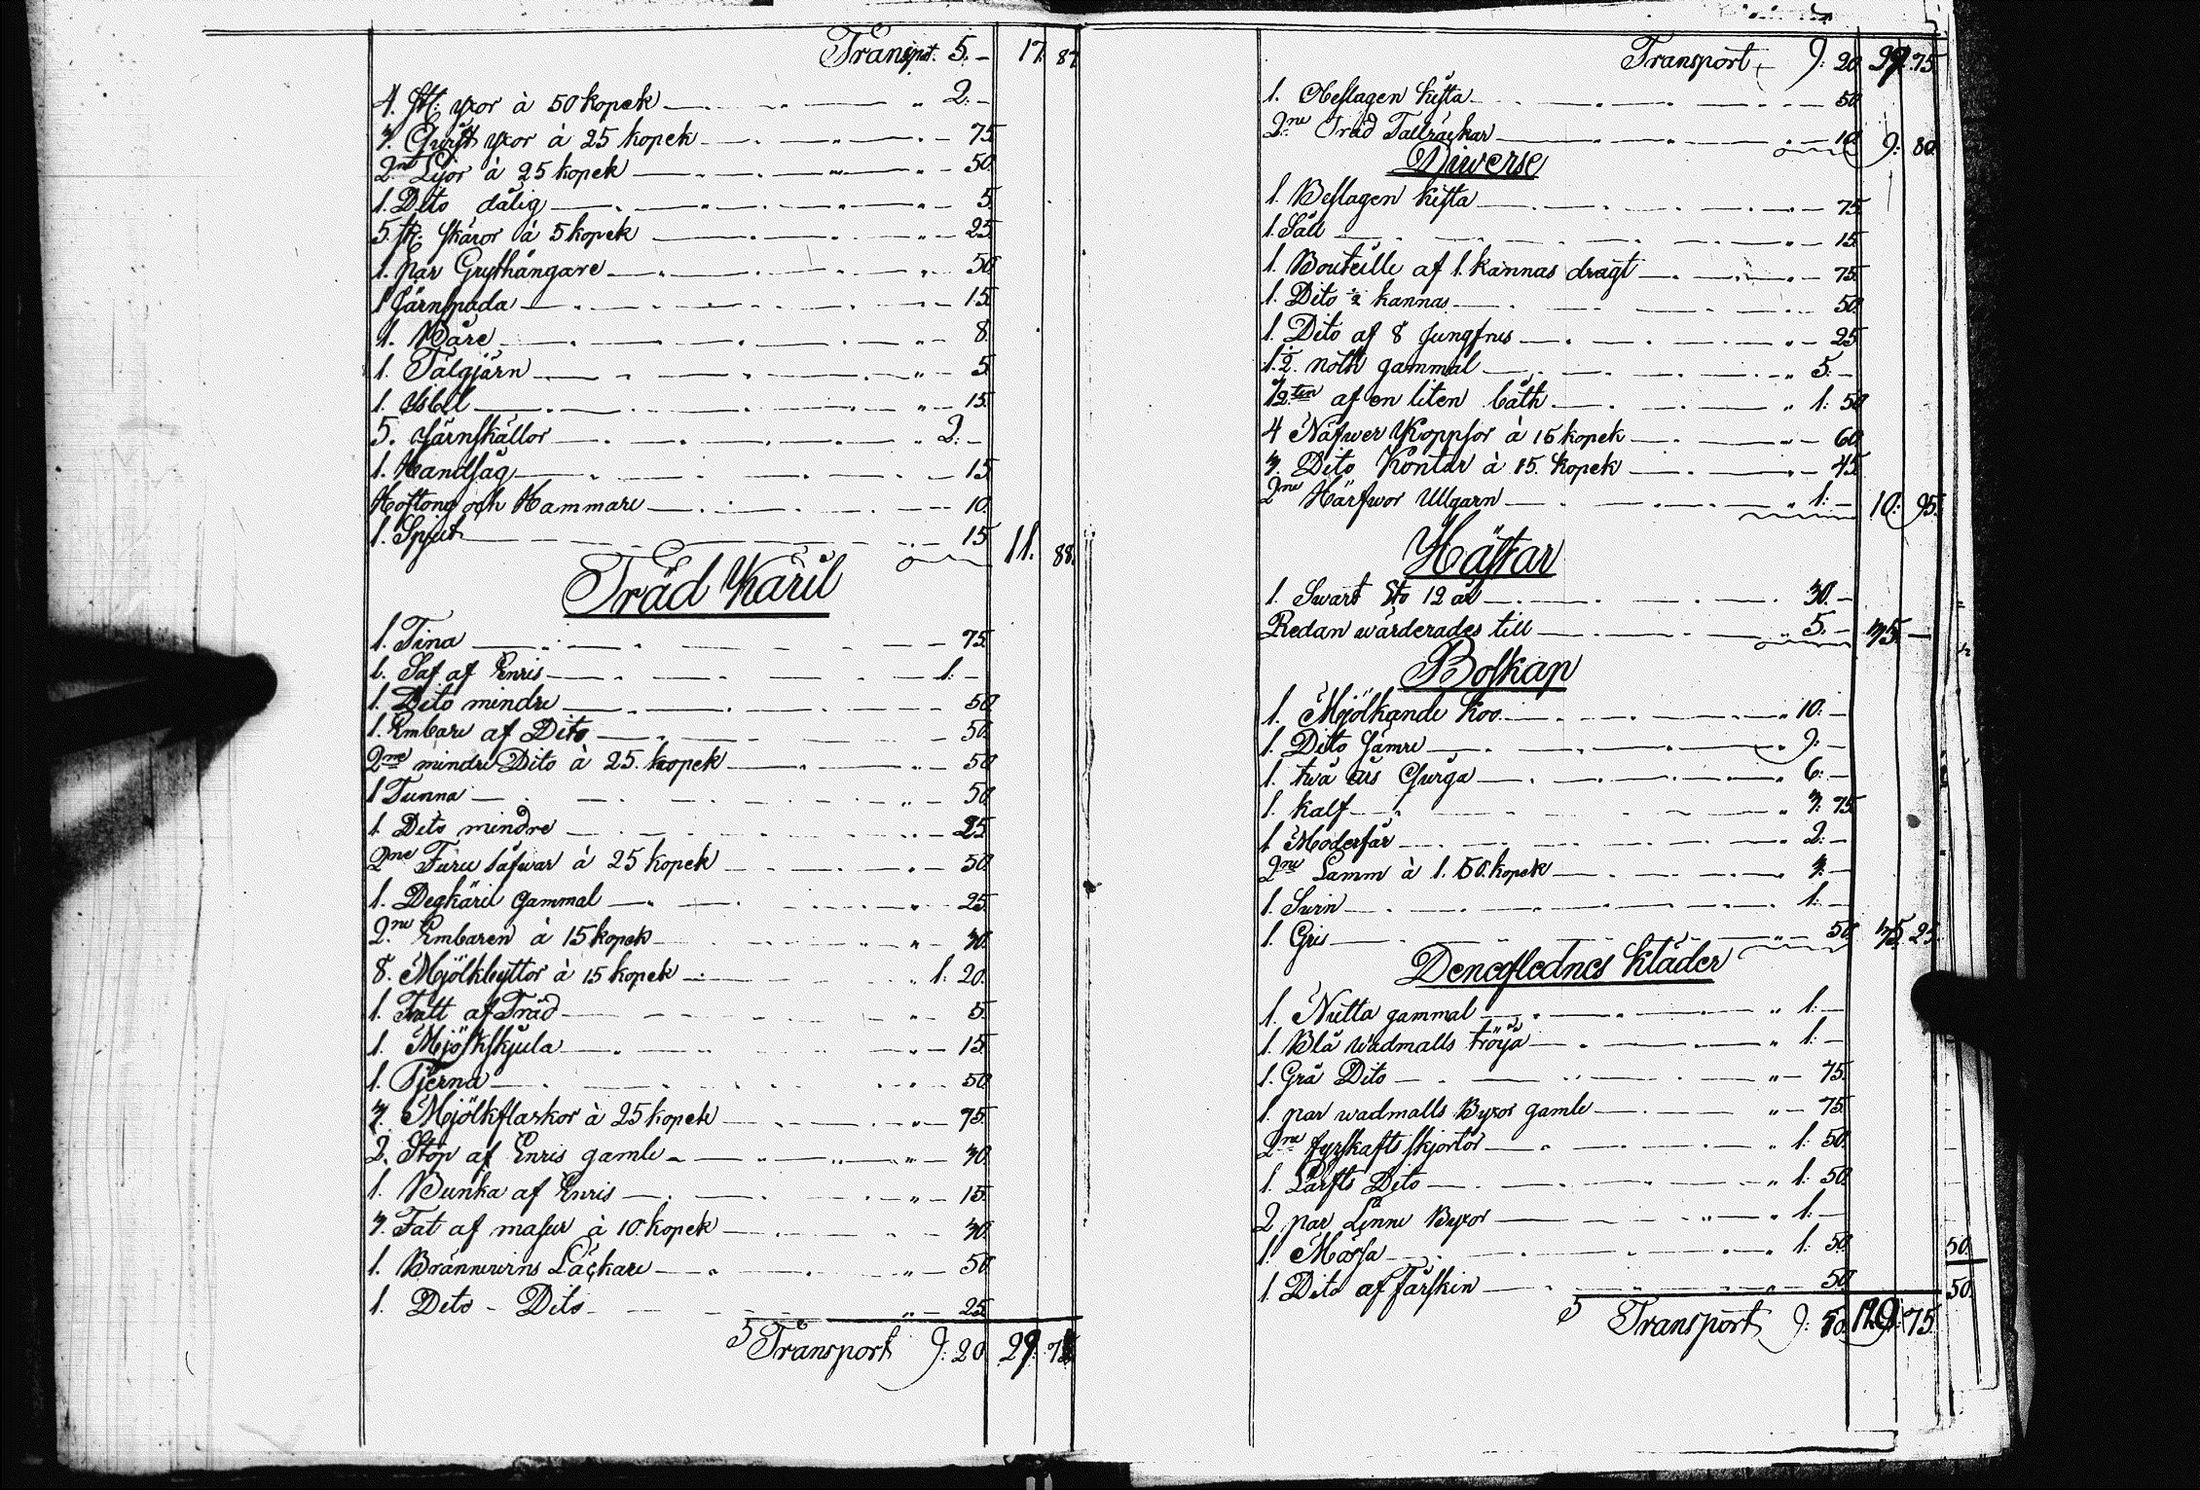 Transport. 5. — 17. 87
4. st: yxor à 50 kopek — 2. —
3. Gurst yxor à 25 kopek — 75.
2ne Lijor à 25 kopek — 50.
1. Dito dålig — 5.
5. st: skäror à 5 kopek — 25.
1. par Grythängare — 50.
1 Järnspada — 15.
1. Nåre — 8.
1. Tälgjärn — 5.
1. Isbill — 15.
5. Järnskällor — 2. —
1. Handsåg — 15.
Hoftong och Hammare — 10.
1. Spjut — 15. 11. 88.
Träd Käril
1. Tina — 75.
1. Saf af Enris — 1. —
1. Dito mindre — 50.
1. Embare af Dito — 50.
2ne mindre Dito à 25. kopek — 50.
1 Tunna — 50.
1. Dito mindre — 25.
2ne Furu Såfwar à 25 kopek — 50.
1. Degkäril gammal — 25.
2ne Embaren à 15 kopek — 30.
8. Mjölkbyttor à 15 kopek — 1. 20.
1. Tratt af Träd — 5.
1. Mjölkskjula — 15.
1. Tjerna — 50.
3. Mjölkflaskor à 25 kopek — 75.
2. Stop af Enris gamle — 30.
1. Bunka af Enris — 15.
3. Fat af masur à 10. kopek — 30.
1. Brännewins Läckare — 50.
1. Dito - Dito — 25.
Transport 9: 20. 29. 75.
Transport 9: 20 29. 75
1. Obeslagen kista — 50.
2ne Träd Tallräckar — 10. 9: 80.
Diwerse
1. Beslagen kista — 75.
1. Såll — 15.
1. Bouteille af 1. kannas dragt — 75.
1. Dito ½ kannas — 50.
1. Dito af 8 Jungfrus — 25
1. 2. noth gammal — 5. —
½ten af en liten båth — 1. 50
4 Näfwer Koppsor à 15 kopek — 60.
3. Dito Kontar à 15. kopek — 45.
2ne Härfwor Ullgarn — 1. — 10. 95.
Hästar
1. Swart Sto 12 år — 30. —
Redan wärderades till — 5. — 35. —
Boskap
1. Mjölkande Koo — 10. —
1. Dito Sämre — 9. —
1. twå års Qwiga — 6. —
1. kalf — 3. 75.
1 Moderfår — 2. —
2ne Lamm à 1. 50. kopek — 3. —
1. Swin — 1. —
1. Gris — 50. 35. 25.
Denaflednes kläder
1. Nutta gammal — 1. —
1. Blå wadmalls tröya — 1. —
1. Grå Dito — 75.
1. par wadmalls Byxor gamle — 75.
2ne fyrskafts skjortor — 1. 50.
1. Lärfts Dito — 1. 50.
2 par Linne Byxor — 1. —
1. Mössa — 1. 50.
1. Dito af Fårskin — 50.
Transport 9: 50. 129. 75.
50.
50.